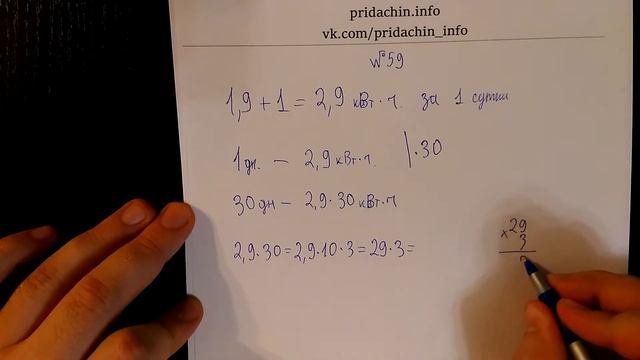 pridachin.info
vk.com/pridachin_info
№59
1,9 + 1 = 2,9 кВт·ч. за 1 сутки
1 дн. — 2,9 кВт·ч. | ·30
30 дн — 2,9·30 кВт·ч
2,9·30 = 2,9·10·3 = 29·3 =
×29
3